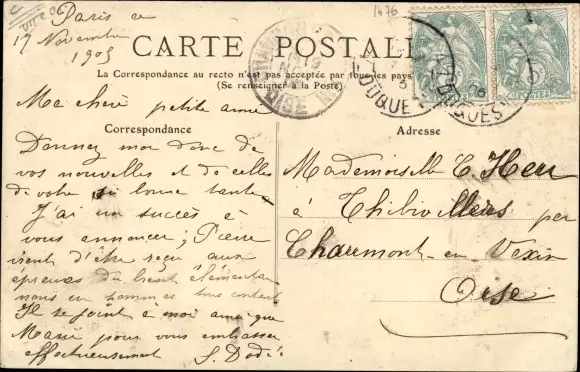 1476
Paris ce
17 Novembre
1905
CARTE POSTALE
La Correspondance au recto n'est pas acceptée par tous les pays
(Se renseigner à la Poste)
Ma chère petite amie
Correspondance
Donnez moi donc de
vos nouvelles et de celles
de votre si bonne tante
J'ai un succès à
vous annoncer ; Pierre
vient d'être reçu aux
épreuves du brevet élémentaire
nous en sommes tous contents
Il se joint à moi ainsi que
Marie pour vous embrasser
affectueusement S. Dodé
Adresse
Mademoiselle C. Heu
à Thibivillers par
Chaumont-en-Vexin
Oise